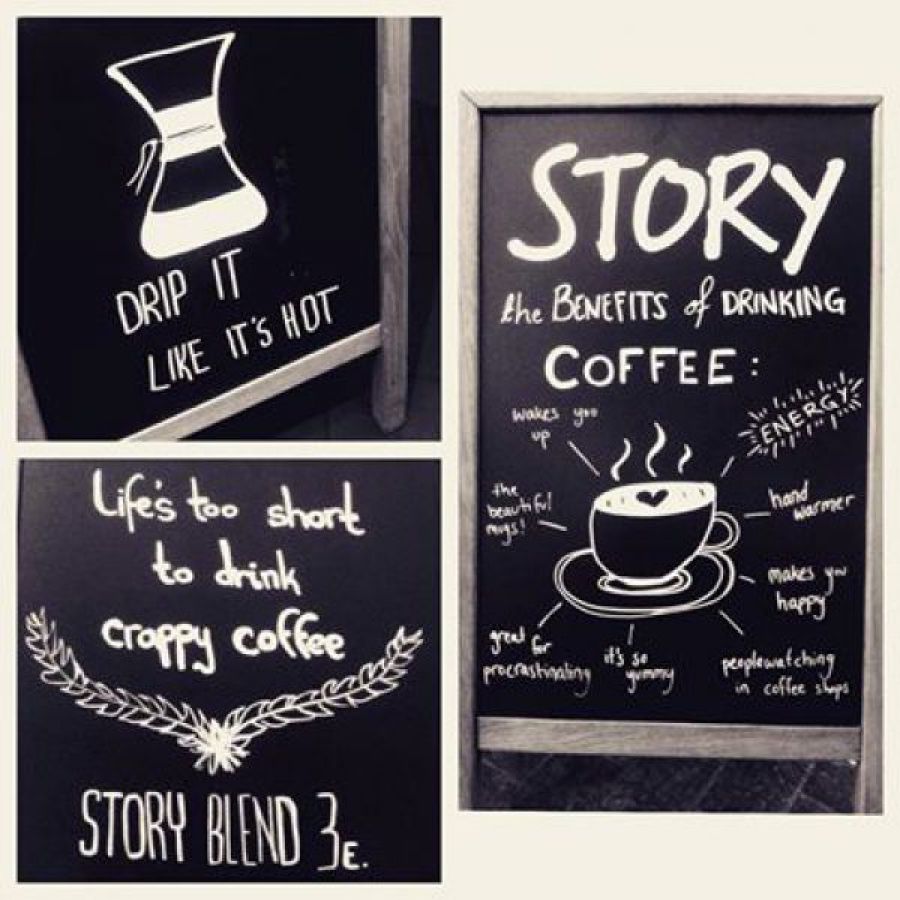 DRIP IT
LIKE IT'S HOT
Life's too short
to drink
crappy coffee
STORY BLEND 3E.
STORY
the BENEFITS of DRINKING
COFFEE:
wakes you
up
ENERGY
the
beautiful
mugs!
hand
warmer
makes you
happy
great
for
procrastinating
it's so
yummy
peoplewatching
in coffee shops